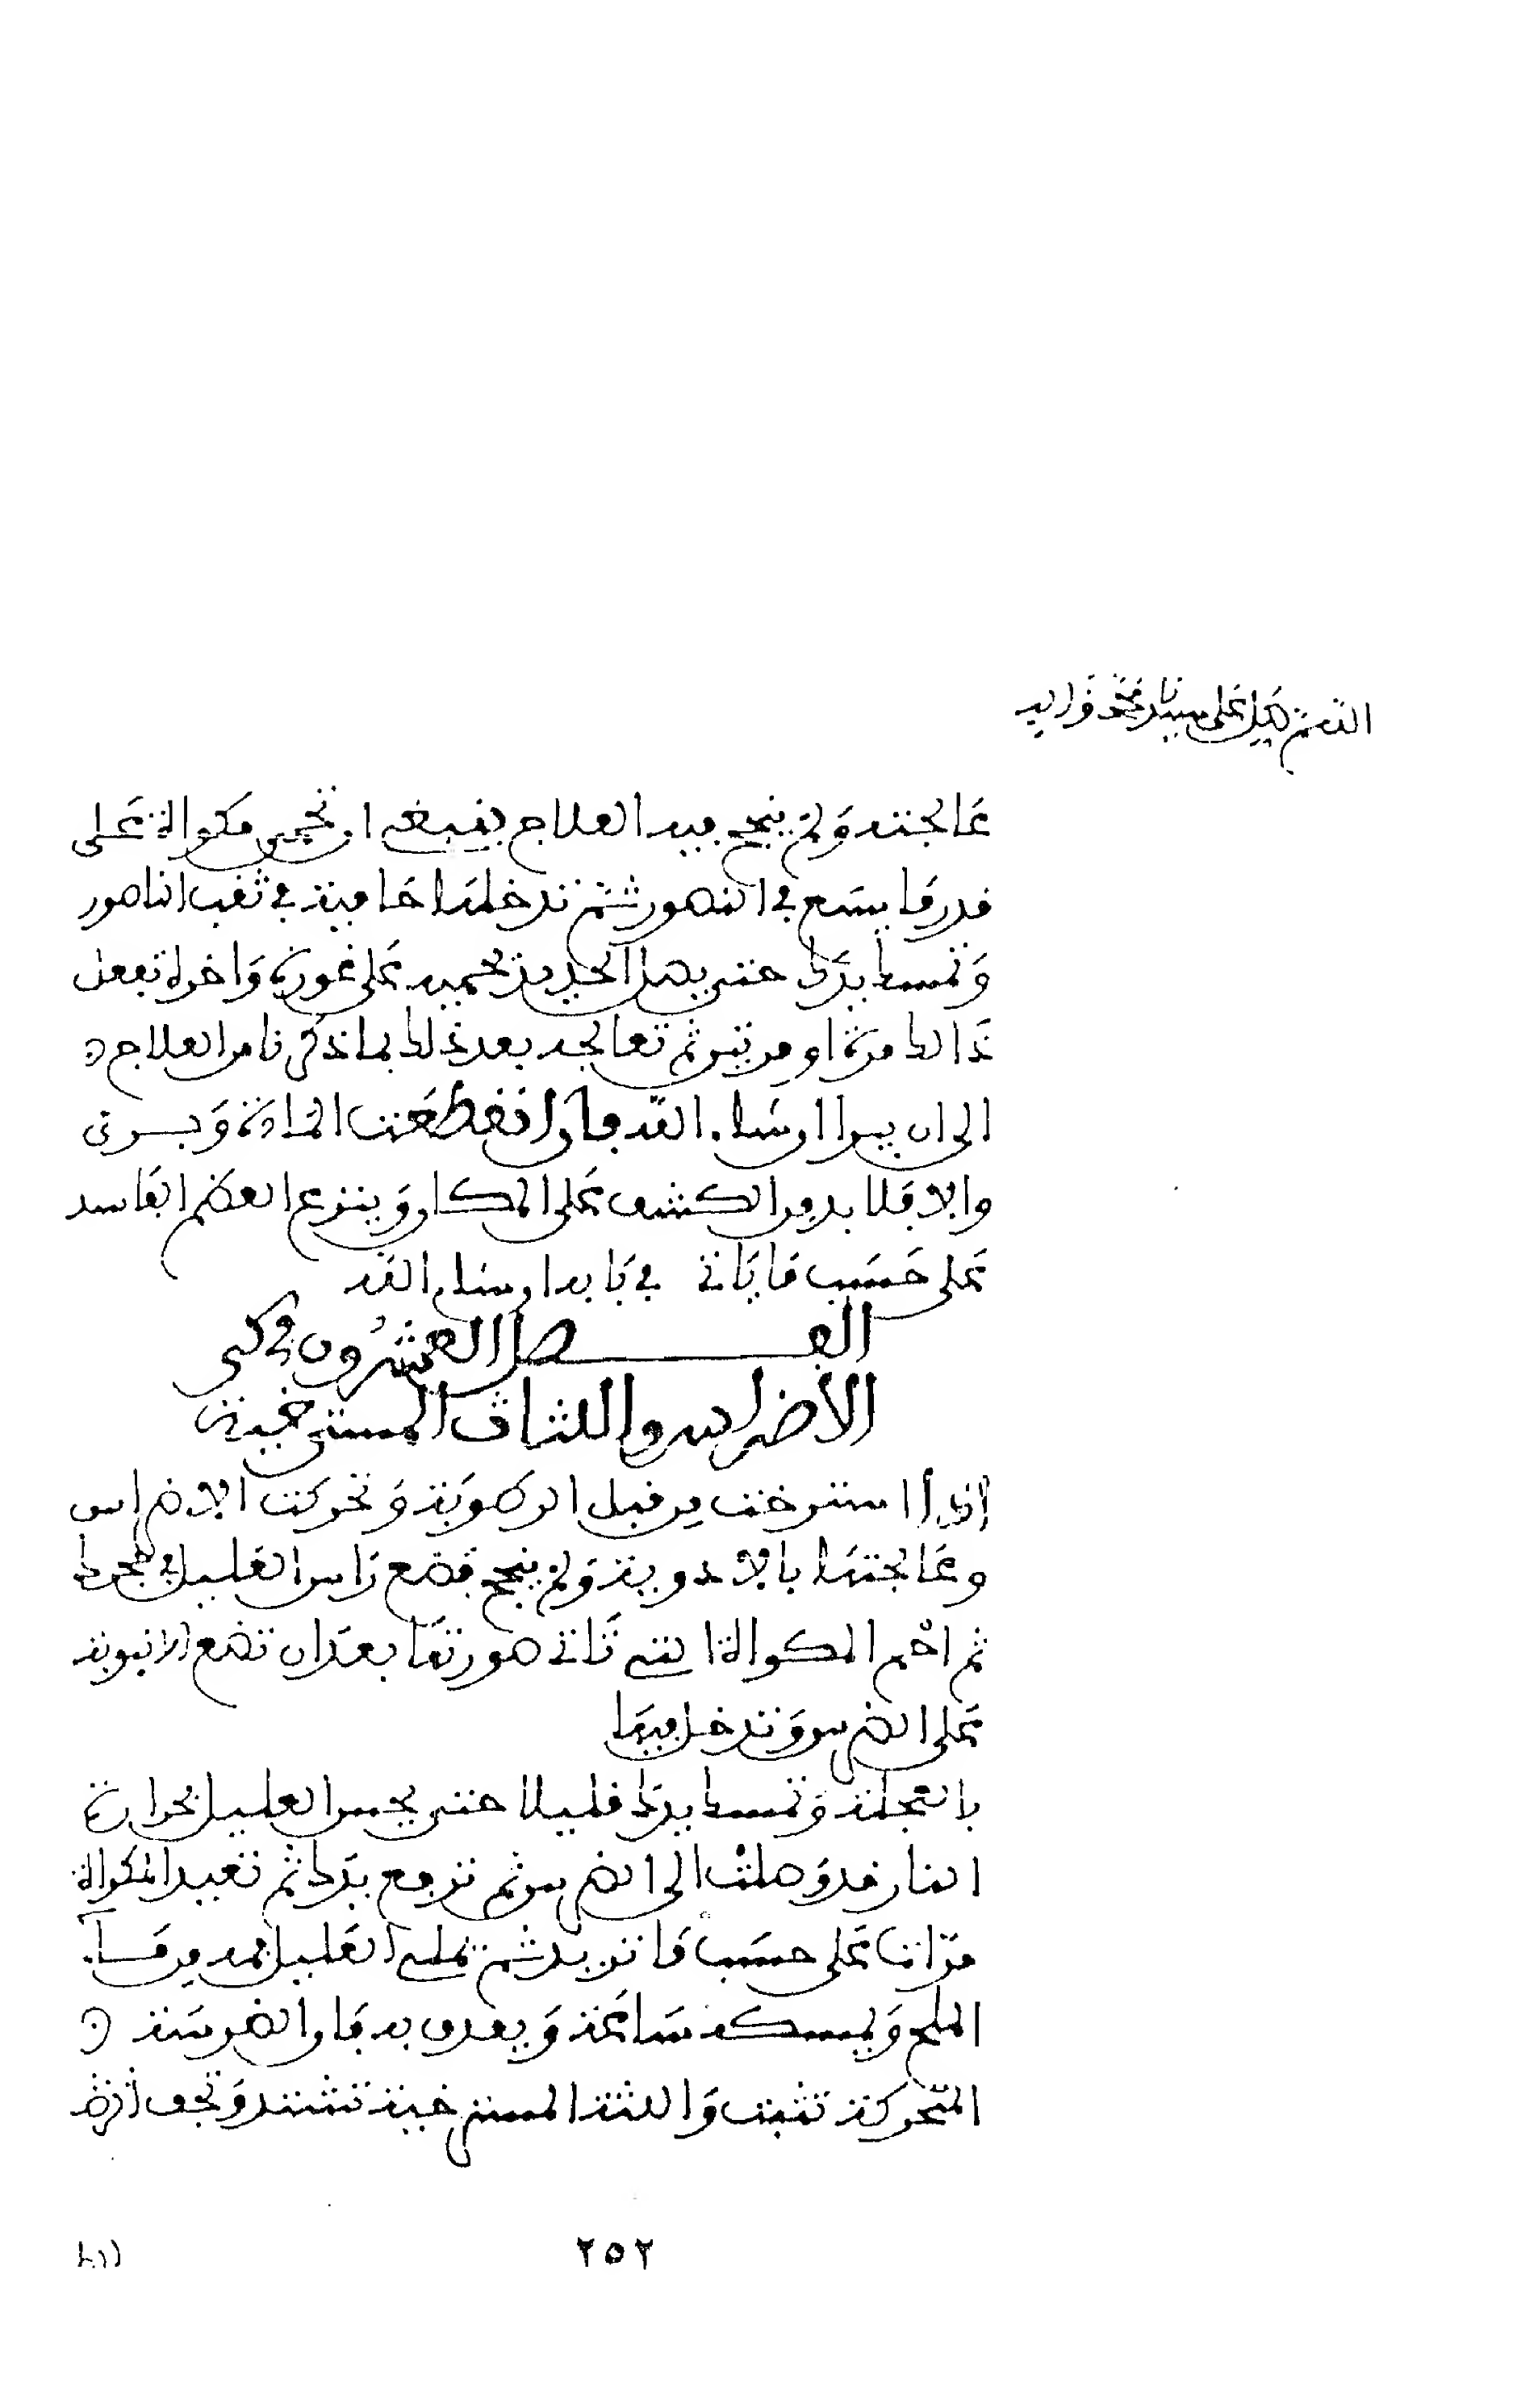 اللهم صل على سيدنا محمد وءاله
عَالجته وَلمْ ينجح فيه العلاج فينبغى ان تحْمِى مكواة عَلى
قدر مَا يسَع في النصور ثمّ تدخلهَا حَامية في ثقب الناصور
وَتمسك يدَك حتى يصل الحديد بحميه عَلى غورِه وَاخره تفعل
ذَالك مرة او مرتين ثم تعالجه بعد ذلك بما ذكرنا من العلاج
الى ان يبرا ان شاء الله فان انقطعَت المَادة وَبرى
والا فلا بد من الكشف عَلى المكان وَينزع العظم الفَاسد
عَلى حَسَب مَا يَاتى في بَابه ان شاء الله
الفصل العشرُون في كي
الاضراس واللثات المسترخية
اذا استرخت من قبل الرطوبَة وَتحركت الاضراس
وعَالجتهَا بالادوية وَلم ينجح فضع رَاس العَليل في حجرك
ثم احْم المكواة التي تَاتى صورتهَا بعدَ ان تضع الانبوبة
عَلى الضرس وَتدخل فيهَا
بالعجلة وَتمسك يدَك قليلا حتى يحس العليل بحرارة
النار قد وَصلتْ الى الضرس ثم ترفع يدَك ثم تعيد المكواة
مرّات عَلى حسَب مَا تريد ثم يملى العَليل فمه من مَاء
الملح وَيمسكه سَاعَة وَيقذف به فَان الضرسَة
المتحركة تثبت وَاللثة المسترخية تشتد وَتجف
٢٥٢